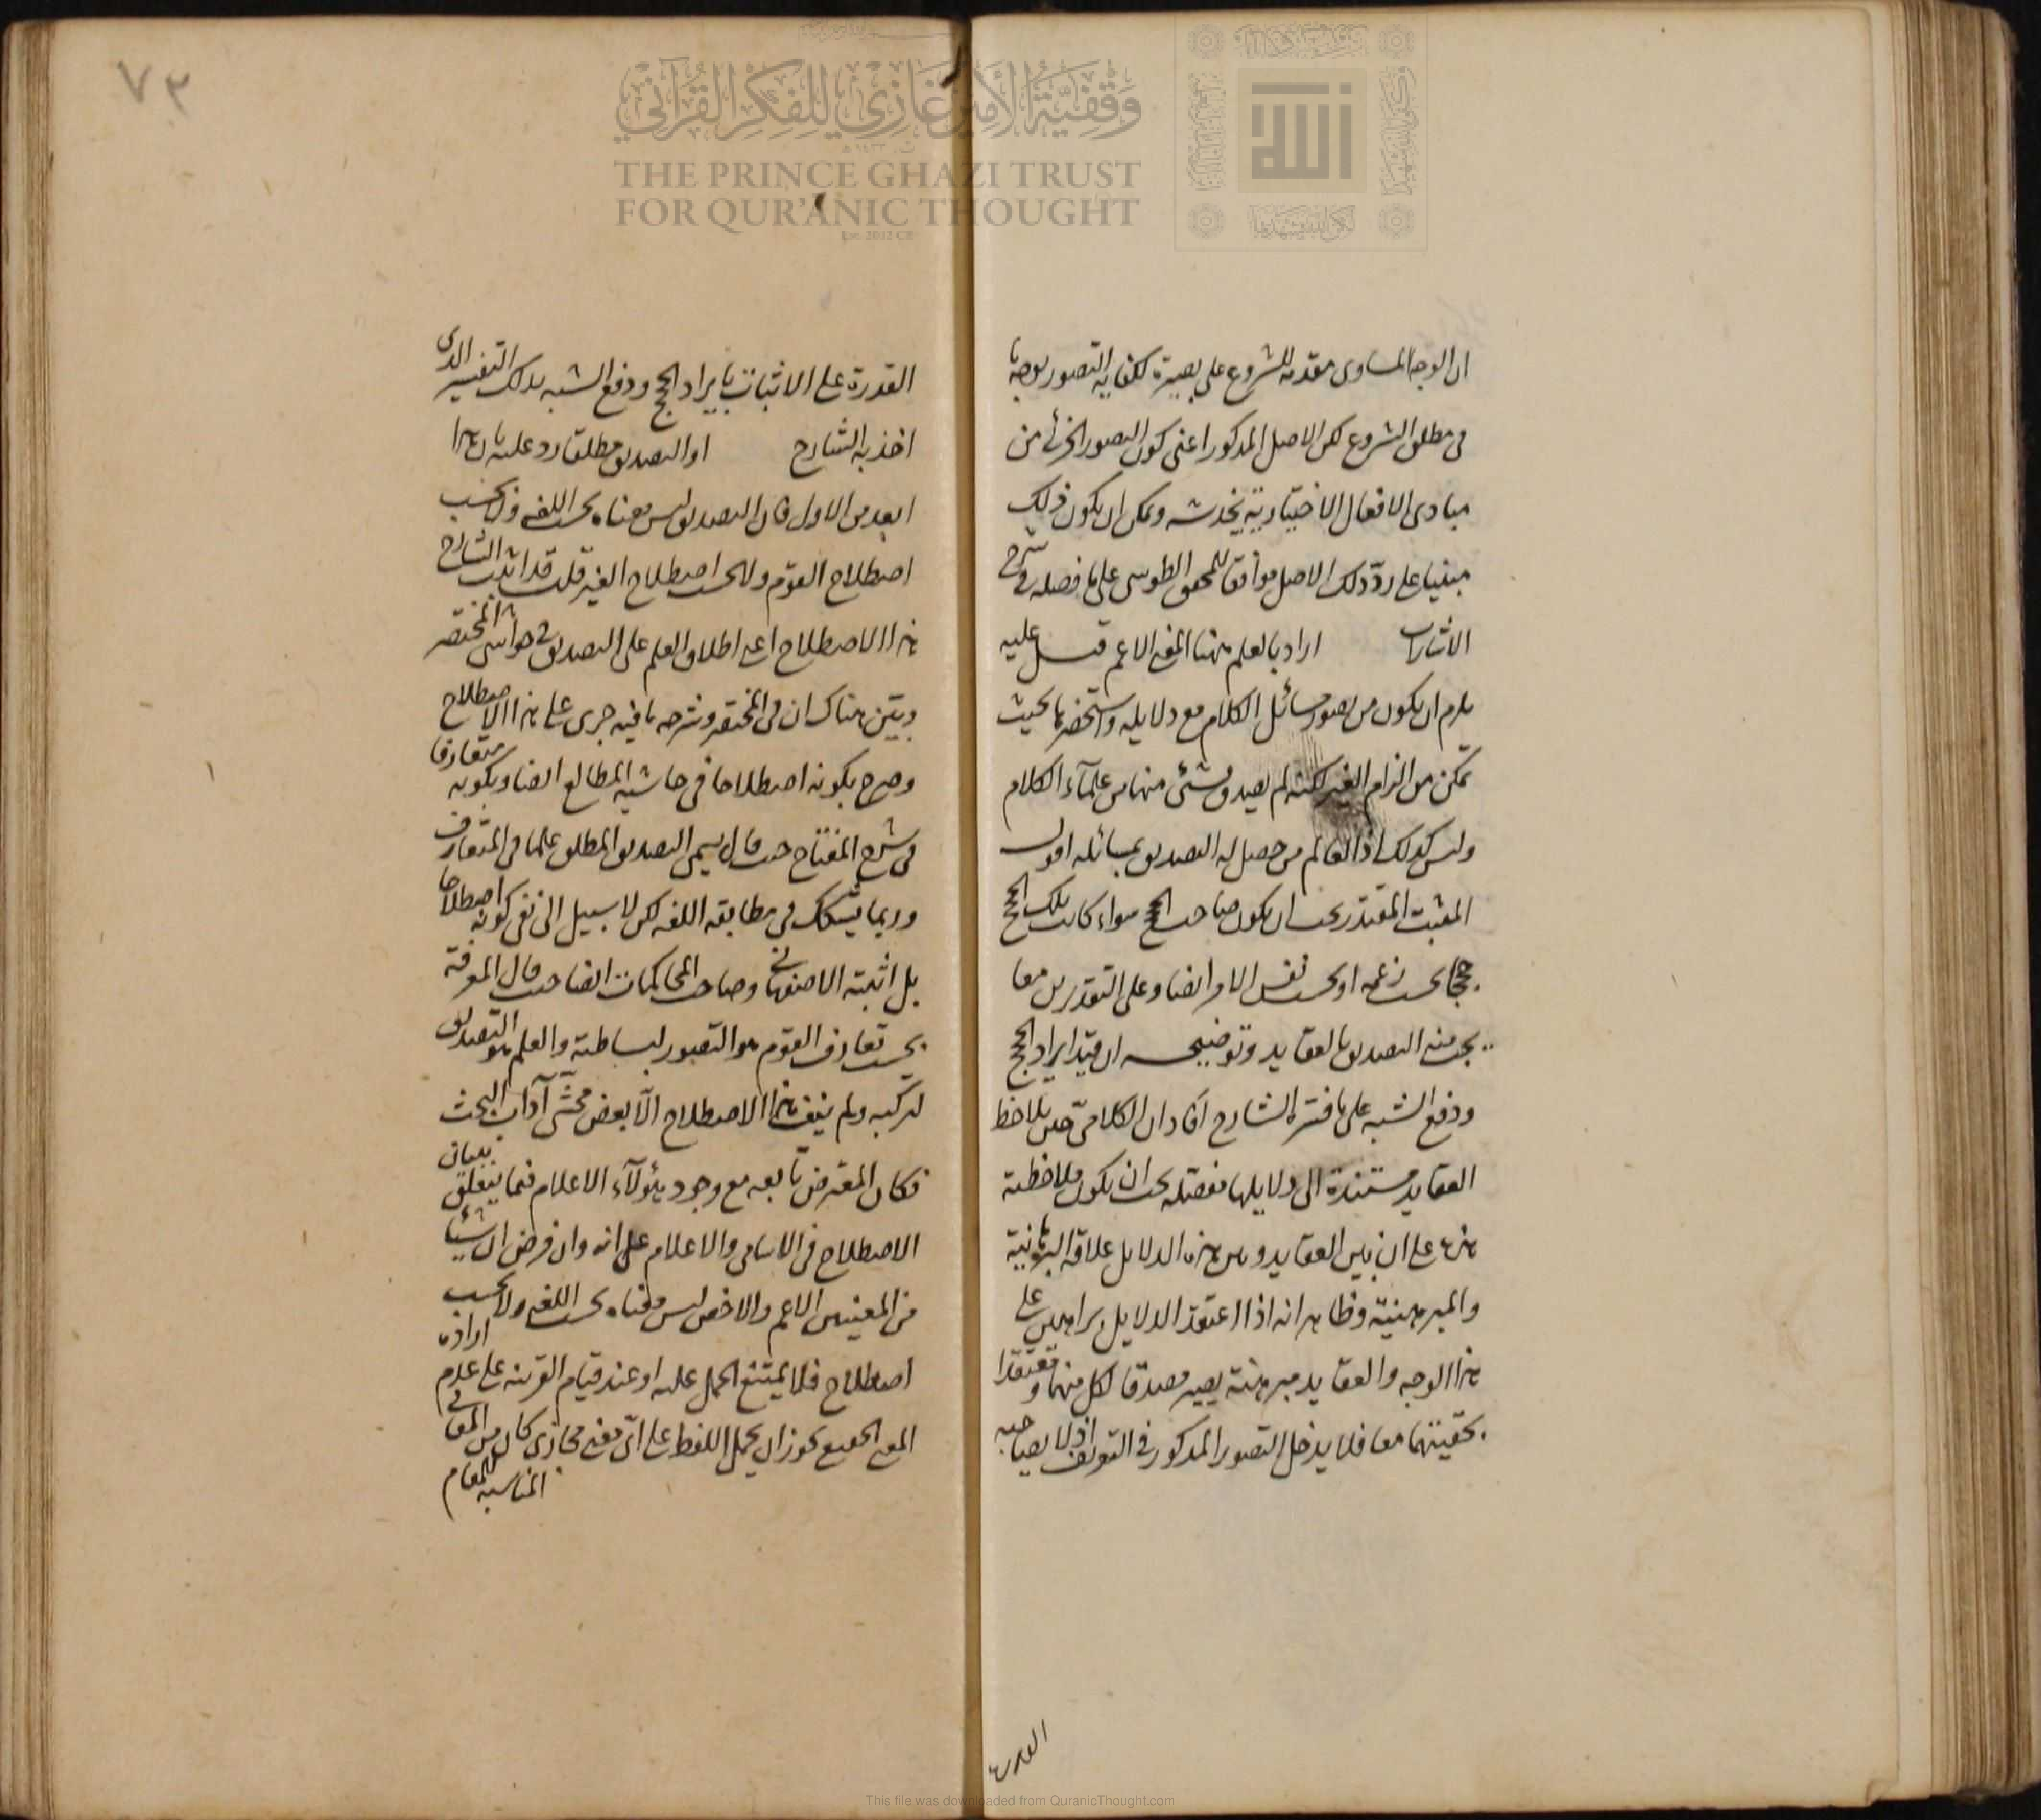 وقفية الأمير غازي للفكر القرآني
THE PRINCE GHAZI TRUST
FOR QUR'ANIC THOUGHT
Est. 2012 CE
ان الوجه المساوى مقدمه للشروع على بصيرة لكفايه التصور بوجه ما
فى مطلق الشروع لكن الاصل المذكور اعنى كون التصور الجزئى من
مبادى الافعال الاختيارية يخدشه ويمكن ان يكون ذلك
مبنيا على ردّ ذلك الاصل موافقا للمحقق الطوسى على ما فصله فى شرح
الاشارات اراد بالعلم ههنا المعنى الاعم قيل عليه
يلزم ان يكون من يصور مسائل الكلام مع دلايله واستحضرها بحيث
تمكن من الزام الغير لكنه لم يصدق بشئ منها من علمآء الكلام
وليس كذلك اذ العالم من حصل له التصديق بمسائله اقول
المثبت المقتدر يجب ان يكون صاحب الحجج سواء كانت تلك الحجج
حججا بحسب زعمه او بحسب نفس الامر ايضا وعلى التقديرين معا
يجب منه التصديق بالعقايد وتوضيحه ان قيد ايراد الحجج
ودفع الشبه على ما فسّره الشارح افاد ان الكلامىّ حين يلاحظ
العقايد مستندة الى دلايلها مفصله يجب ان يكون ملاحظته
هذه على ان بين العقايد وبين هذه الدلايل علاقة البرهانية
والمبرهنية وظاهر انه اذا اعتقد الدلايل براهين على
هذا الوجه والعقايد مبرهنة يصير مصدقا لكل منهما ومعتقدا
بحقيتهما معا فلا يدخل التصور المذكور فى التعريف اذ لا يصاحبه
القدرة
٧٣
القدرة على الاثبات بايراد الحجج ودفع الشبه بذلك التفسير الذى
اخذ به الشارح او التصديق مطلقا رد عليه بان هذا
ابعد من الاول فان التصديق ليس معناه بحسب اللغه ولا بحسب
اصطلاح القوم ولا بحسب اصطلاح الغير قلت قد اثبت الشارح
هذا الاصطلاح اعنى اطلاق العلم على التصديق فى حواشى المختصر
وبيّن هناك ان فى المختصر وشرحه ما فيه جرى على هذا الاصطلاح
وصرح بكونه اصطلاحا فى حاشيه المطالع ايضا وبكونه متعارفا
فى شرح المفتاح حيث قال يسمى التصديق المطلق علما فى المتعارف
وربما يشكك فى مطابقه اللغه لكن لا سبيل الى نفى كونه اصطلاحا
بل اثبته الاصفهانى وصاحب المحاكمات ايضا حيث قال المعرفة
بحسب تعارف القوم هو التصور لبساطته والعلم هو التصديق
لتركبه ولم ينف هذا الاصطلاح الّا بعض محشّى آداب البحث
فكان المعترض تابعه مع وجود هؤلآء الاعلام فيما يتعلق ببيان
الاصطلاح فى الاسامى والاعلام على انه وان فرض ان شيئا
من المعنيين الاعم والاخص ليس معناه بحسب اللغه ولا بحسب
اصطلاح فلا يمتنع الحمل عليه اذ عند قيام القرينه على عدم ارادة
المعنى الحقيقى يجوز ان يحمل اللفظ على اىّ معنى مجازى كان من المعانى
المناسبه للمقام
This file was downloaded from QuranicThought.com